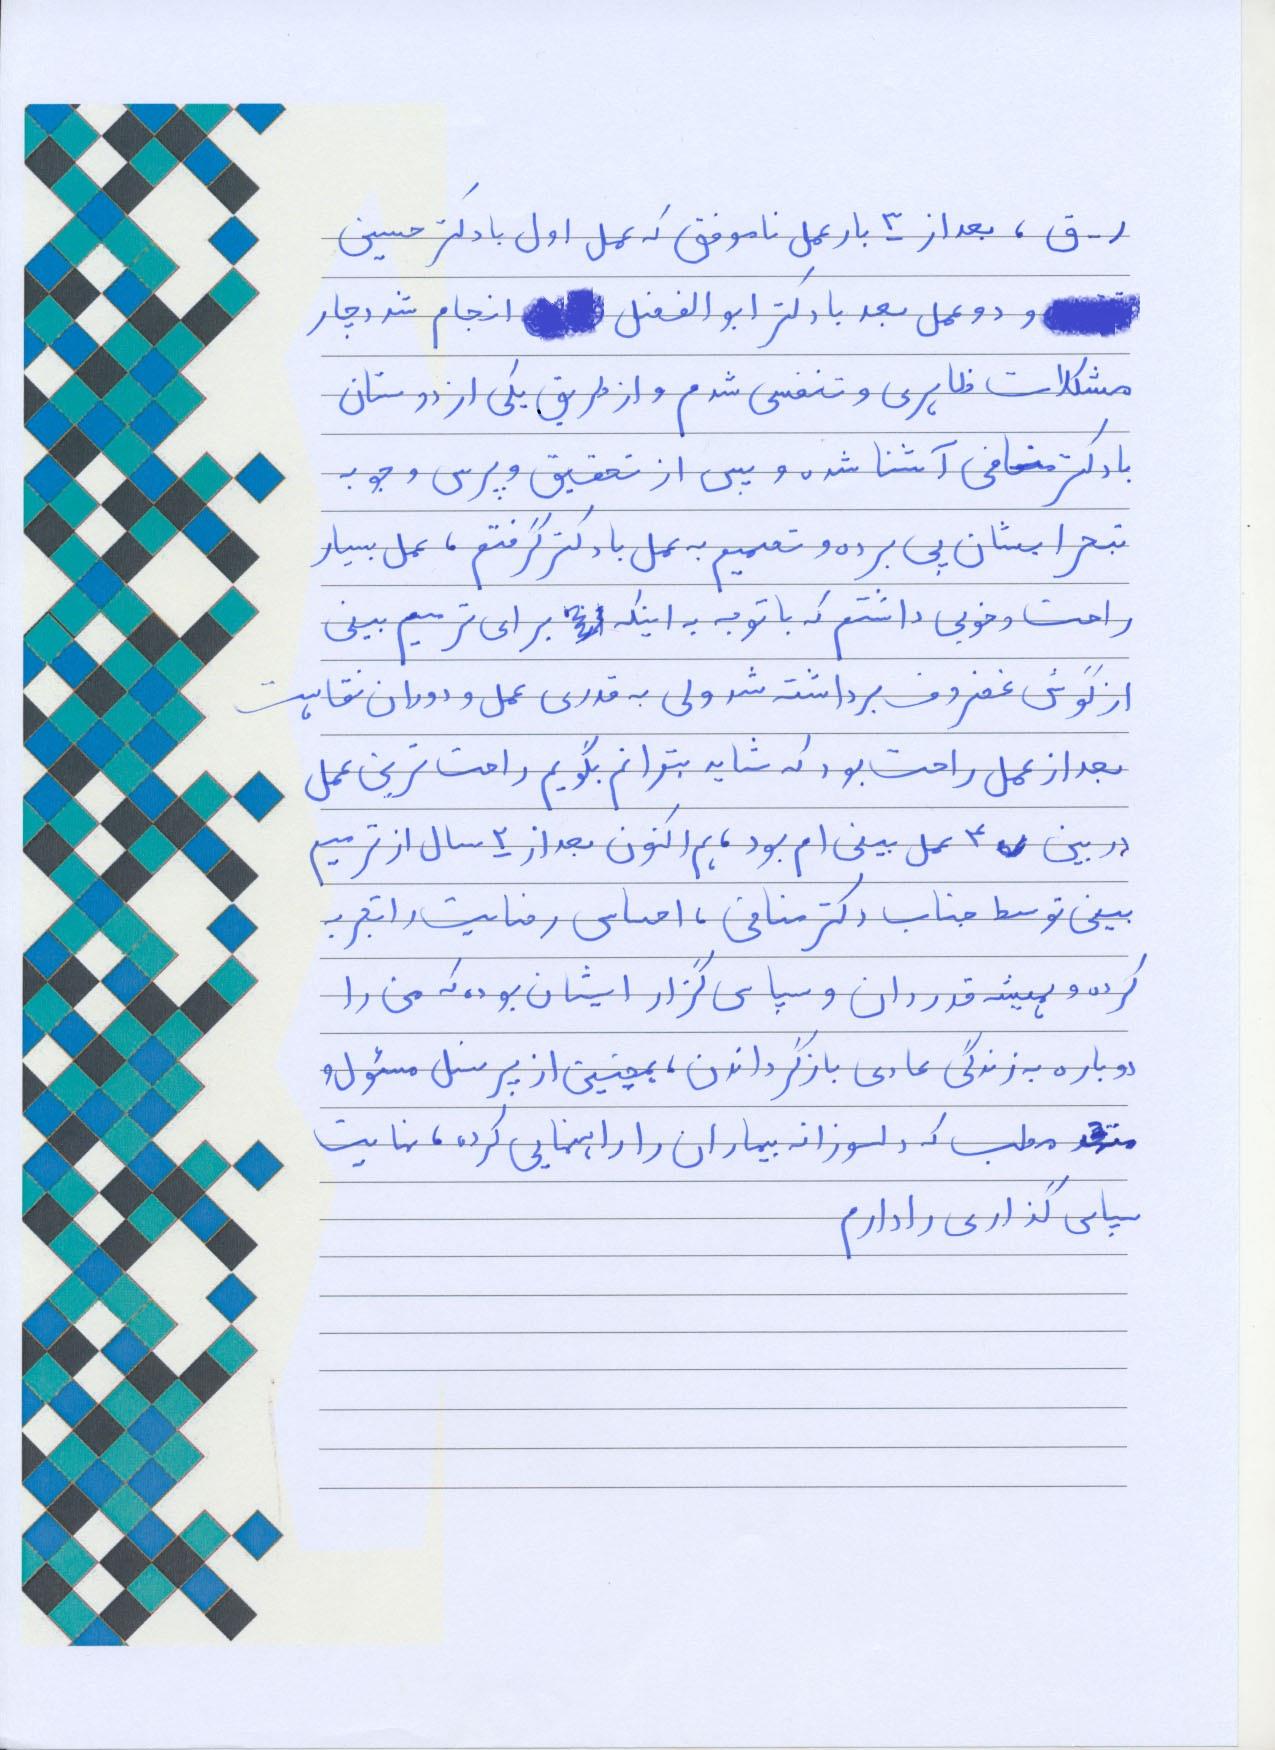 ر-ق ، بعد از ۳ بار عمل ناموفق که عمل اول با دکتر حسینی
و دو عمل بعد با دکتر ابوالفضل انجام شد دچار
مشکلات ظاهری و تنفسی شدم و از طریق یکی از دوستان
با دکتر منافی آشنا شده و پس از تحقیق و پرس و جو به
تبحر ایشان پی برده و تصمیم به عمل با دکتر گرفتم ، عمل بسیار
راحت و خوبی داشتم که با توجه به اینکه برای ترمیم بینی
از گوش غضروف برداشته شد ولی به قدری عمل و دوران نقاهت
بعد از عمل راحت بود که شاید بتوانم بگویم راحت ترین عمل
در بین ۴ عمل بینی ام بود ، هم اکنون بعد از ۲ سال از ترمیم
بینی توسط جناب دکتر منافی ، احساس رضایت را تجربه
کرده و همیشه قدردان و سپاس گزار ایشان بوده که من را
دوباره به زندگی عادی بازگرداندن ، همچنین از پرسنل مسئول و
مطب که دلسوزانه بیماران را راهنمایی کرده ، نهایت
سپاس گذاری را دارم